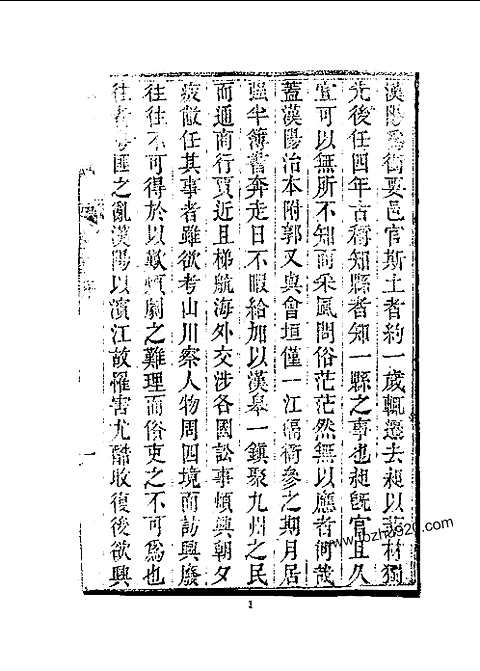 漢陽爲衝要邑官斯土者約一歲輒遷去昶以菲材獨
先後任四年古稱知縣者知一縣之事也昶旣官且久
宜可以無所不知而采風問俗茫茫然無以應者何哉
蓋漢陽治本附郭又與會垣僅一江隔衙參之期月居
强半簿書奔走日不暇給加以漢皋一鎮聚九州之民
而通商行賈近且梯航海外交涉各國訟事頻興朝夕
疲敝任其事者雖欲考山川察人物周四境而訪興廢
往往不可得於以歎煩劇之難理而俗吏之不可爲也
往者粵匪之亂漢陽以濱江故罹害尤酷收復後欲興
1